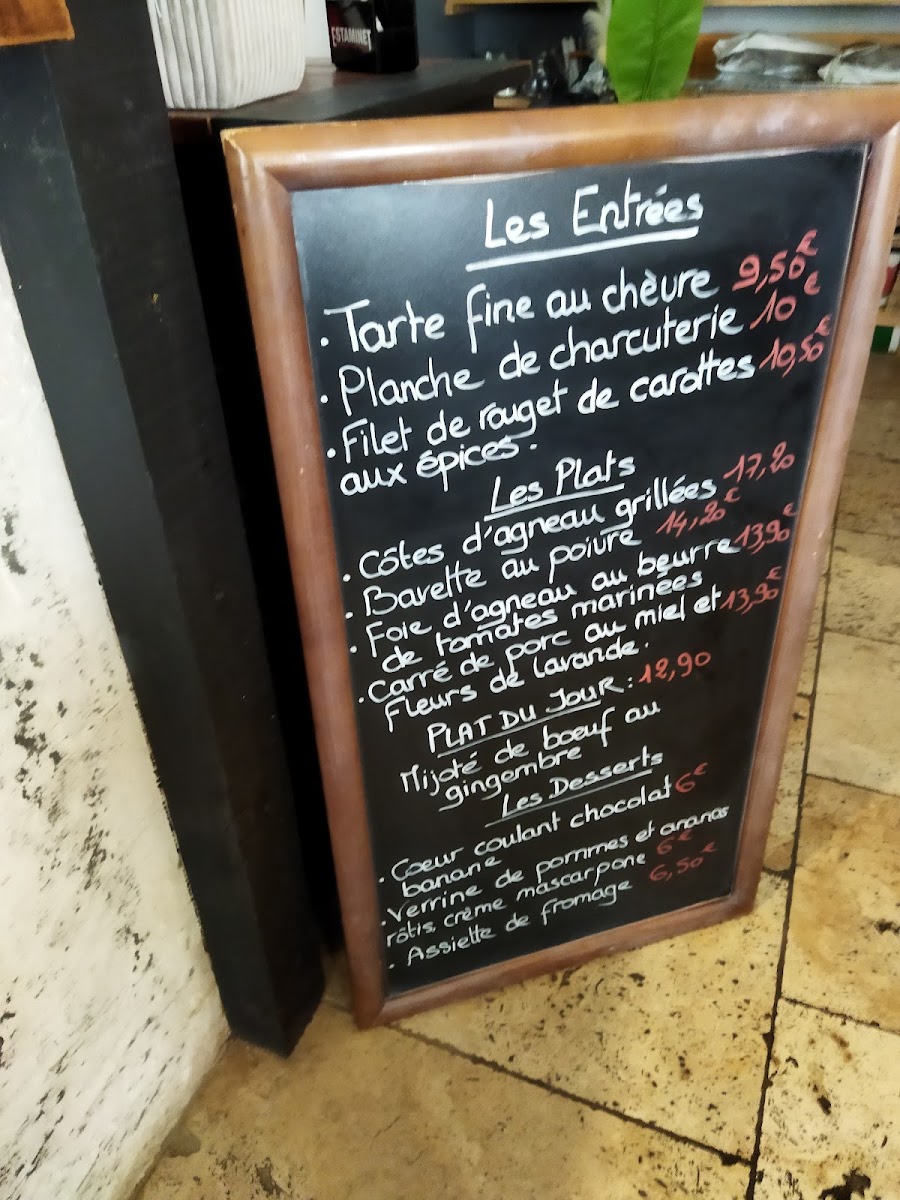 ESTAMINET
Les Entrées
. Tarte fine au chèvre 9,50€
. Planche de charcuterie 10€
. Filet de rouget de carottes 10,50€
aux épices.
Les Plats
. Côtes d'agneau grillées 17,20
. Bavette au poivre 14,20€
. Foie d'agneau au beurre 13,90€
de tomates marinées
. Carré de porc au miel et 13,90€
fleurs de lavande.
PLAT DU JOUR : 12,90
Mijoté de bœuf au
gingembre
Les Desserts
. Coeur coulant chocolat 6€
banane
. Verrine de pommes et ananas
rôtis, crème mascarpone 6€
. Assiette de fromage 6,50€